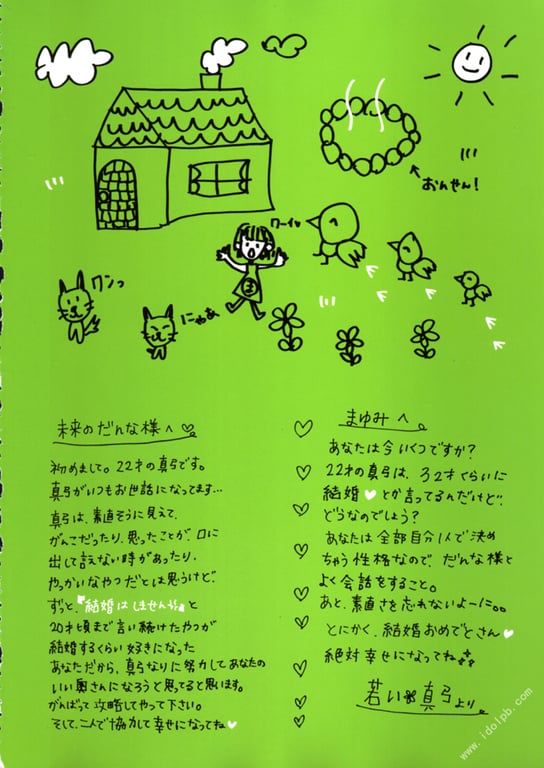 おんせん!
ワーイ
ワンっ
にゃあ
ま
未来のだんな様へ♡
初めまして。22才の真弓です。
真弓がいつもお世話になってます…
真弓は、素直そうに見えて、
がんこだったり、思ったことが、口に
出して言えない時があったり、
やっかいなやつだとは思うけど、
ずっと、"結婚はしません"と
20才頃まで言い続けたやつが
結婚するくらい好きになった
あなただから、真弓なりに努力してあなたの
いい奥さんになろうと思ってると思います。
がんばって攻略してやって下さい。
そして、二人で協力して幸せになってね♥
まゆみへ。
あなたは今いくつですか?
22才の真弓は、32才くらいに
結婚♥とか言ってるんだけど…
どうなのでしょう?
あなたは全部自分1人で決め
ちゃう性格なので、だんな様と
よく会話をすること。
あと、素直さを忘れないよーに。。
とにかく、結婚おめでとさん♥
絶対幸せになってね
若い真弓より。
www.idolpb.com